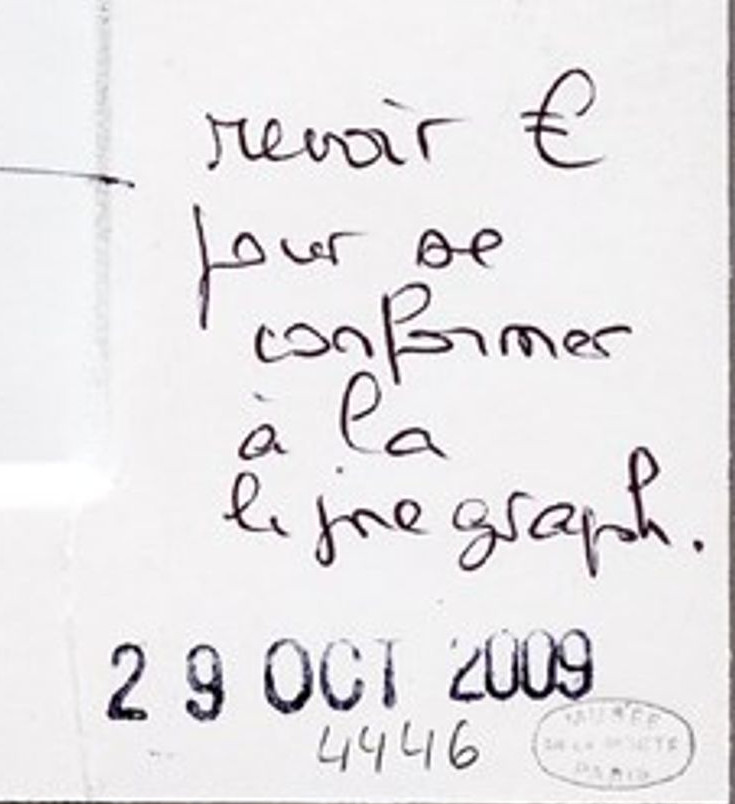 revoir €
pour se
conformer
à la
ligne graph.
29 OCT 2009
4446
MUSÉE
DE LA POSTE
PARIS